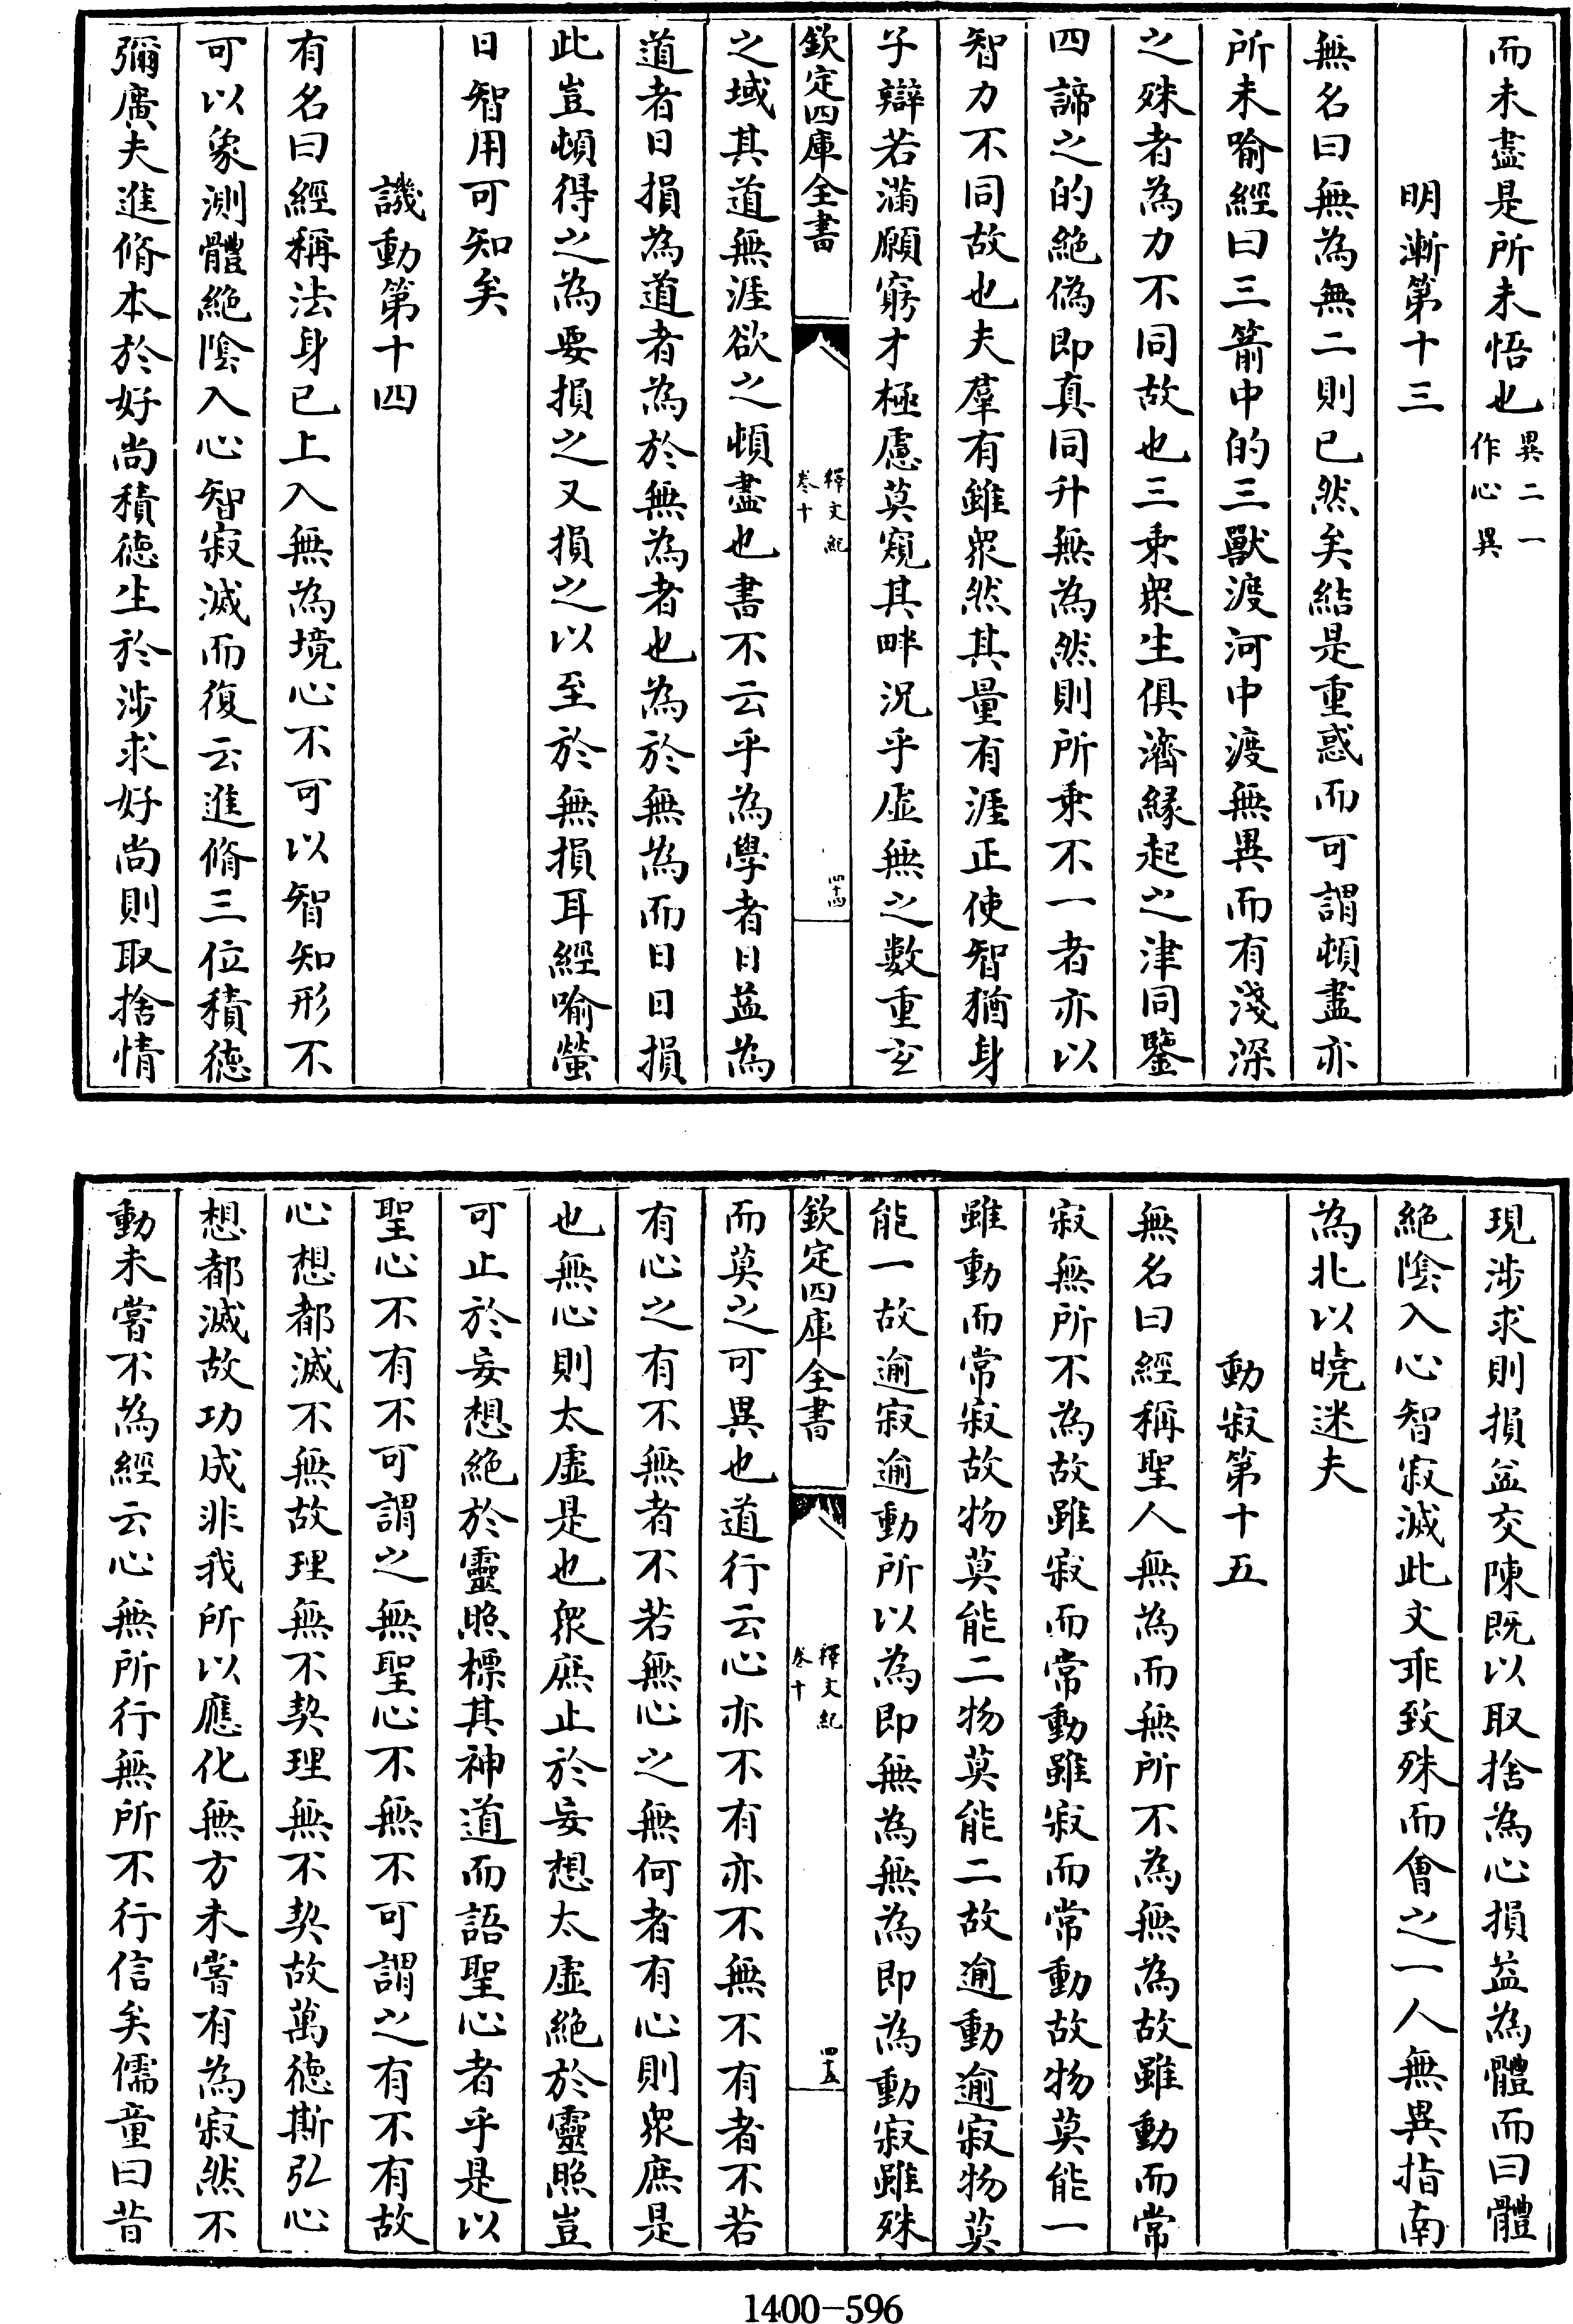 而未盡是所未悟也異二一作心異
明漸第十三
無名曰無為無二則已然矣結是重惑而可謂頓盡亦
所未喻經曰三箭中的三獸渡河中渡無異而有淺深
之殊者為力不同故也三乗衆生俱濟縁起之津同鑒
四諦之的絶偽即真同升無為然則所乗不一者亦以
智力不同故也夫羣有雖衆然其量有涯正使智猶身
子辯若滿願窮才極慮莫窺其畔況乎虚無之數重玄
欽定四庫全書
釋文紀
卷十
四十四
之域其道無涯欲之頓盡也書不云乎為學者日益為
道者日損為道者為於無為者也為於無為而日日損
此豈頓得之為要損之又損之以至於無損耳經喻螢
日智用可知矣
譏動第十四
有名曰經稱法身已上入無為境心不可以智知形不
可以象測體絶陰入心智寂滅而復云進脩三位積徳
彌廣夫進脩本於好尚積徳生於涉求好尚則取捨情
現涉求則損益交陳既以取捨為心損益為體而曰體
絶陰入心智寂滅此文乖致殊而會之一人無異指南
為北以曉迷夫
動寂第十五
無名曰經稱聖人無為而無所不為無為故雖動而常
寂無所不為故雖寂而常動雖寂而常動故物莫能一
雖動而常寂故物莫能二物莫能二故逾動逾寂物莫
能一故逾寂逾動所以為即無為無為即為動寂雖殊
欽定四庫全書
釋文紀
卷十
四十五
而莫之可異也道行云心亦不有亦不無不有者不若
有心之有不無者不若無心之無何者有心則衆庶是
也無心則太虚是也衆庶止於妄想太虚絶於靈照豈
可止於妄想絶於靈照標其神道而語聖心者乎是以
聖心不有不可謂之無聖心不無不可謂之有不有故
心想都滅不無故理無不契理無不契故萬徳斯弘心
想都滅故功成非我所以應化無方未嘗有為寂然不
動未嘗不為經云心無所行無所不行信矣儒童曰昔
1400-596